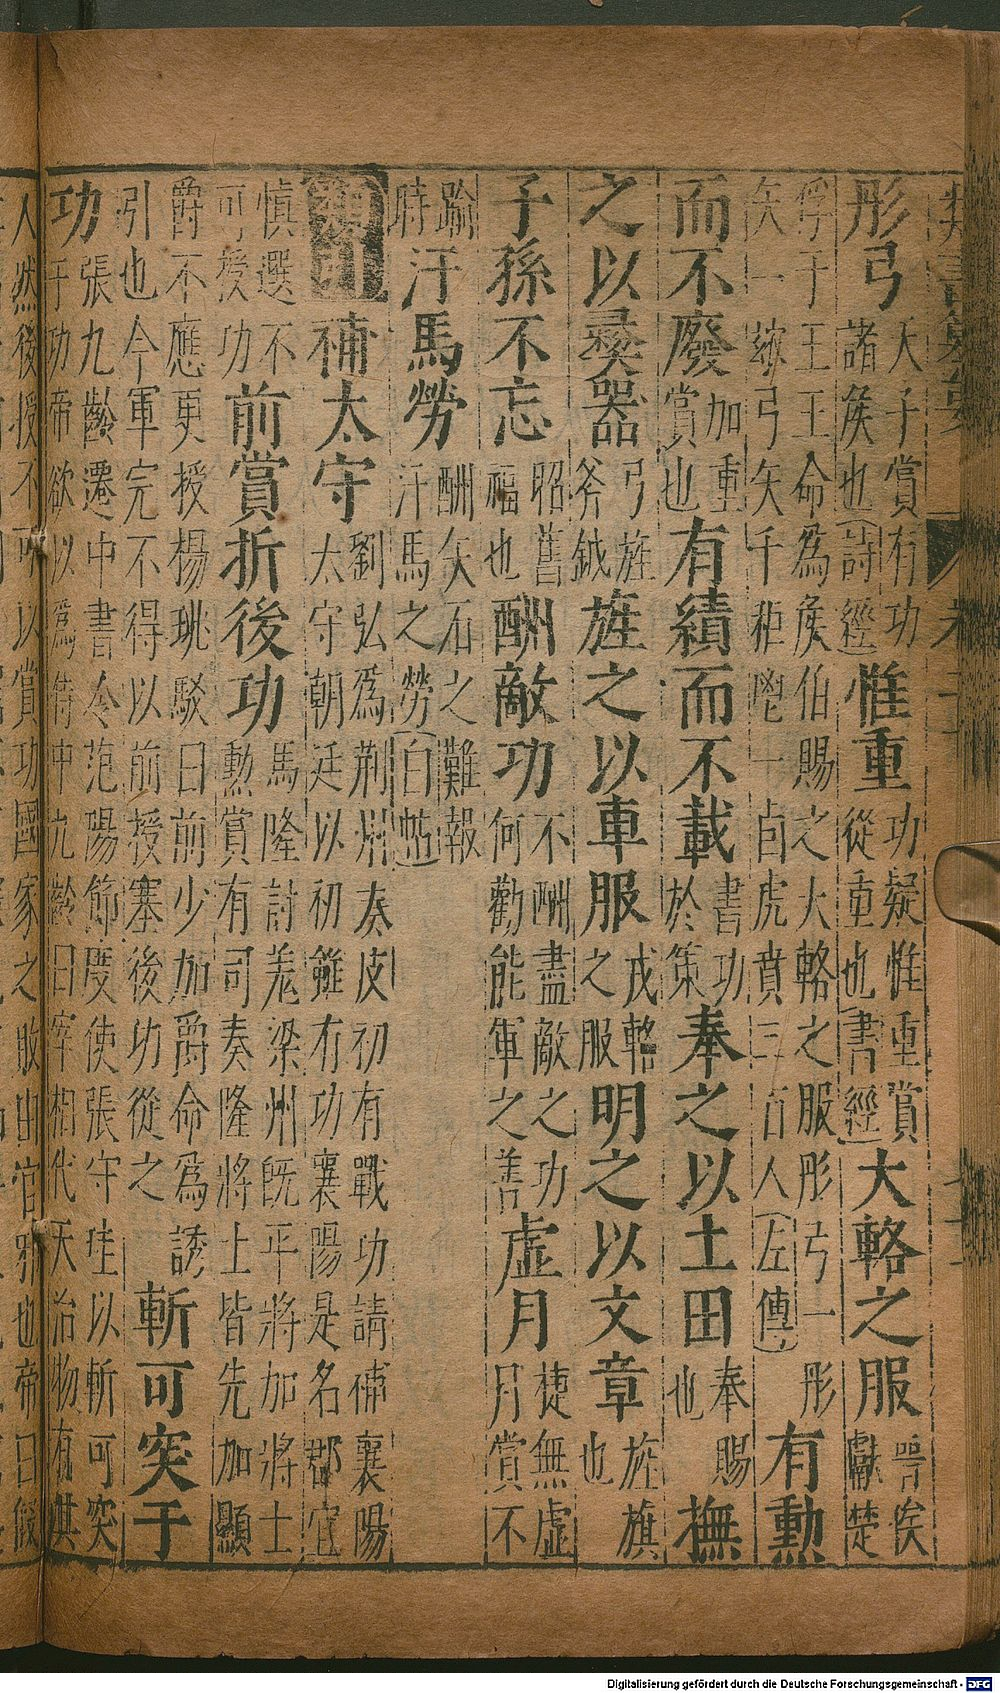 彤弓天子賞有功諸侯也(詩經)惟重功疑惟重賞從重也(書經)大輅之服晉侯獻楚
俘于王王命為侯伯賜之大輅之服彤弓一彤矢一玈弓矢千秬鬯一卣虎賁三百人(左傳)有勲
而不廢加重賞也有績而不載書功於策奉之以土田奉賜也撫
之以彞器弓旌斧鉞旌之以車服戎輅之服明之以文章旌旗也
子孫不忘昭舊福也酬敵功不酬盡敵之功何勸能軍之善虛月捷無虛月賞不
踰時汗馬勞酬矢石之難報汗馬之勞(白帖)
補太守劉弘為荆州奏皮初有戰功請補襄陽太守朝廷以初雖有功襄陽是名郡宜
慎選不可授功前賞折後功馬隆討羗梁州既平將加將士勲賞有司奏隆將士皆先加顯
爵不應更授楊珧駁曰前少加爵命為誘引也今軍完不得以前授塞後功從之斬可突于
功張九齡遷中書令范陽節度使張守珪以斬可突于功帝欲以為侍中九齡曰宰相代天治物有其
人然後授不可以賞功國家之敗由官邪也帝曰假
Digitalisierung gefördert durch die Deutsche Forschungsgemeinschaft - DFG